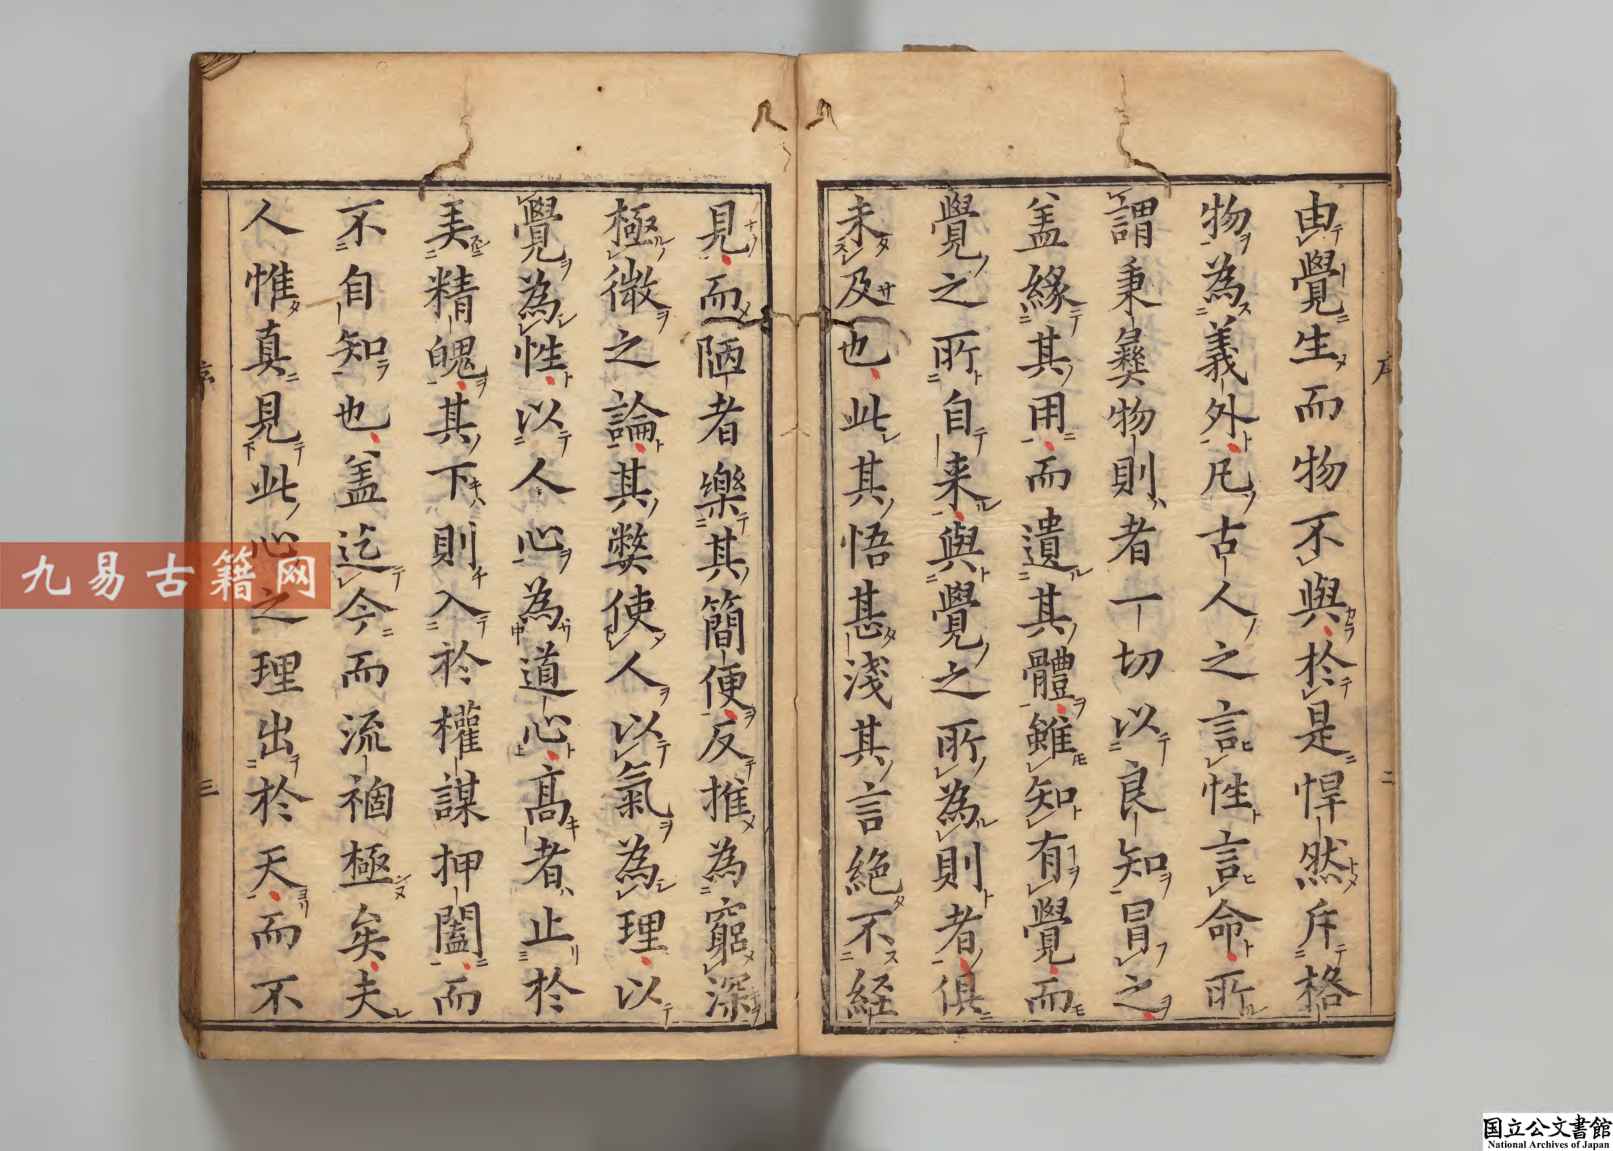 由覺生而物不與於是悍然斥格
物為義外凡古人之言性言命所
謂秉彝物則者一切以良知冒之
盖緣其用而遺其體雖知有覺而
覺之所自来與覺之所為則者俱
未及也此其悟甚淺其言絶不経
序
二
見而陋者樂其簡便反推為窮深
極微之論其弊使人以氣為理以
覺為性以人心為道心高者止於
美精魄其下則入於權謀押闔而
不自知也盖迄今而流禍極矣夫
人惟真見此心之理出於天而不
三
九易古籍网
国立公文書館
National Archives of Japan